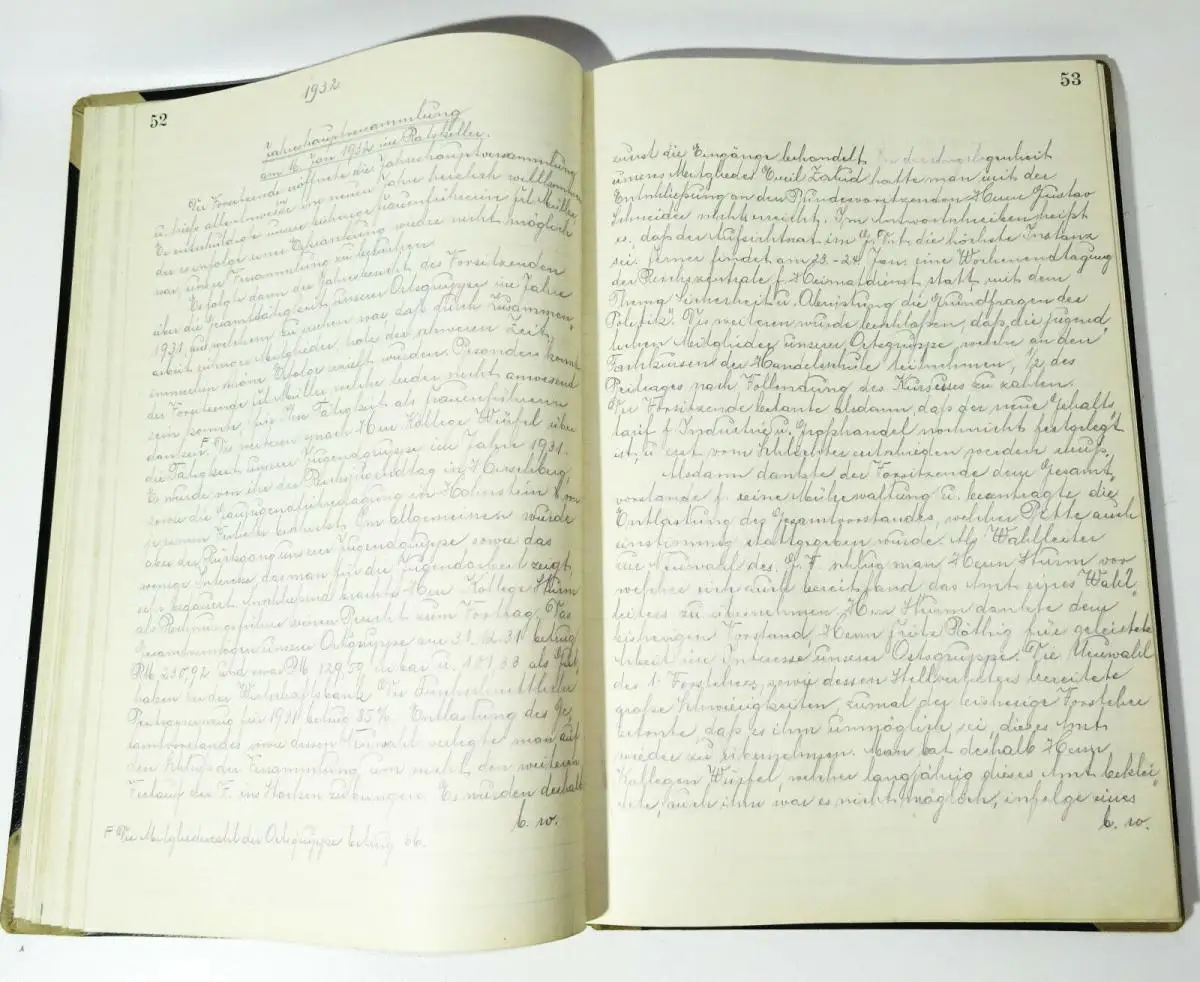 1932
52
Jahreshauptversammlung
am 16. Jan 1932 im Ratskeller.
Der Vorsitzende eröffnete die Jahreshauptversammlung
u. hieß alle Anwesende im neuen Jahre herzlich willkommen
Er entschuldigte unsere bisherige Frauenführerin Frl. Müller
der es infolge einer Erkrankung wieder nicht möglich
war, unsere Versammlung zu besuchen.
Es folgte dann der Jahresbericht des Vorsitzenden
über die Gesamttätigkeit unserer Ortsgruppe im Jahre
1931, aus welchem zu ersehen war, daß durch Zusammen-
arbeit unserer Mitglieder, trotz der schweren Zeit,
immerhin Erfolge erzielt wurden. Besonders konnte
der Vorsitzende Frl. Müller welche leider nicht anwesend
sein konnte, für ihre Tätigkeit als Frauenführerin
danken. F Des weiteren sprach Herr Kollege Würfel über
die Tätigkeit unserer Jugendgruppe im Jahre 1931.
Es wurde von ihr der Reichsjugendtag in Hirschberg,
sowie die Gaujugendführertagung in Hohnstein
besucht. Im allgemeinen wurde
aber der Rückgang unserer Jugendgruppe sowie das
wenige Interesse, das man für die Jugendarbeit zeigt,
sehr bedauert. Anschließend brachte Herr Kollege Sturm
als Rechnungsführer seinen Bericht zum Vortrag. Das
Gesamtvermögen unserer Ortsgruppe am 31.12.31 betrug
RM und zwar RM 129,59 in bar u. 101,33 als Gut-
haben bei der Wirtschaftsbank. Der durchschnittliche
Beitragseingang für 1931 betrug 85%. Entlastung des Ge-
samtvorstandes sowie dessen Neuwahl verlegte man auf
den Schluß der Versammlung um nicht den weiteren
Verlauf der V. ins Stocken zu bringen. Es wurden deshalb
b. w.
F Die Mitgliederzahl der Ortsgruppe betrug 66.
53
zuerst die Eingänge behandelt. In der Angelegenheit
unseres Mitgliedes Emil hatte man mit der
Entschließung an den Bundesvorsitzenden Herrn Gustav
Schneider nichts erreicht. Im Antwortschreiben heißt
es, daß der Aufsichtsrat im die höchste Instanz
sei. Ferner findet am 23.-24. Jan. eine Wochenendtagung
der Reichszentrale f. Heimatdienst statt, mit dem
Thema "Sicherheit u. Abrüstung die Grundfragen der
Politik". Des weiteren wurde beschlossen, daß die jugend-
lichen Mitglieder unserer Ortsgruppe, welche an den
Fachkursen der Handelsschule teilnehmen, 1/2 des
Beitrages nach Vollendung des Kursuses zu zahlen.
Der Vorsitzende betonte alsdann, daß der neue Gehalts-
tarif f. Industrie u. Großhandel noch nicht festgelegt
ist, u. erst vom Schlichter entschieden werden muß.
Alsdann dankte der Vorsitzende dem Gesamt-
vorstande f. seine Mühewaltung u. beantragte die
Entlastung des Gesamtvorstandes, welcher Bitte auch
einstimmig stattgegeben wurde. Als Wahlleiter
zur Neuwahl des G. V. schlug man Herrn Sturm vor
welcher sich auch bereit fand das Amt eines Wahl-
leiters zu übernehmen. Herr Sturm dankte dem
bisherigen Vorstand, Herrn Fritz Röthig für geleistete
Arbeit im Interesse unserer Ortsgruppe. Die Neuwahl
des 1. Vorstehers, sowie dessen Stellvertreters bereitete
große Schwierigkeiten, zumal der bisherige Vorsteher
betonte, daß es ihm unmöglich sei, dieses Amt
wieder zu übernehmen. Man bat deshalb Herrn
Kollegen Würfel, welcher langjährig dieses Amt beklei-
dete, auch ihm war es nicht möglich, infolge eines
b. w.